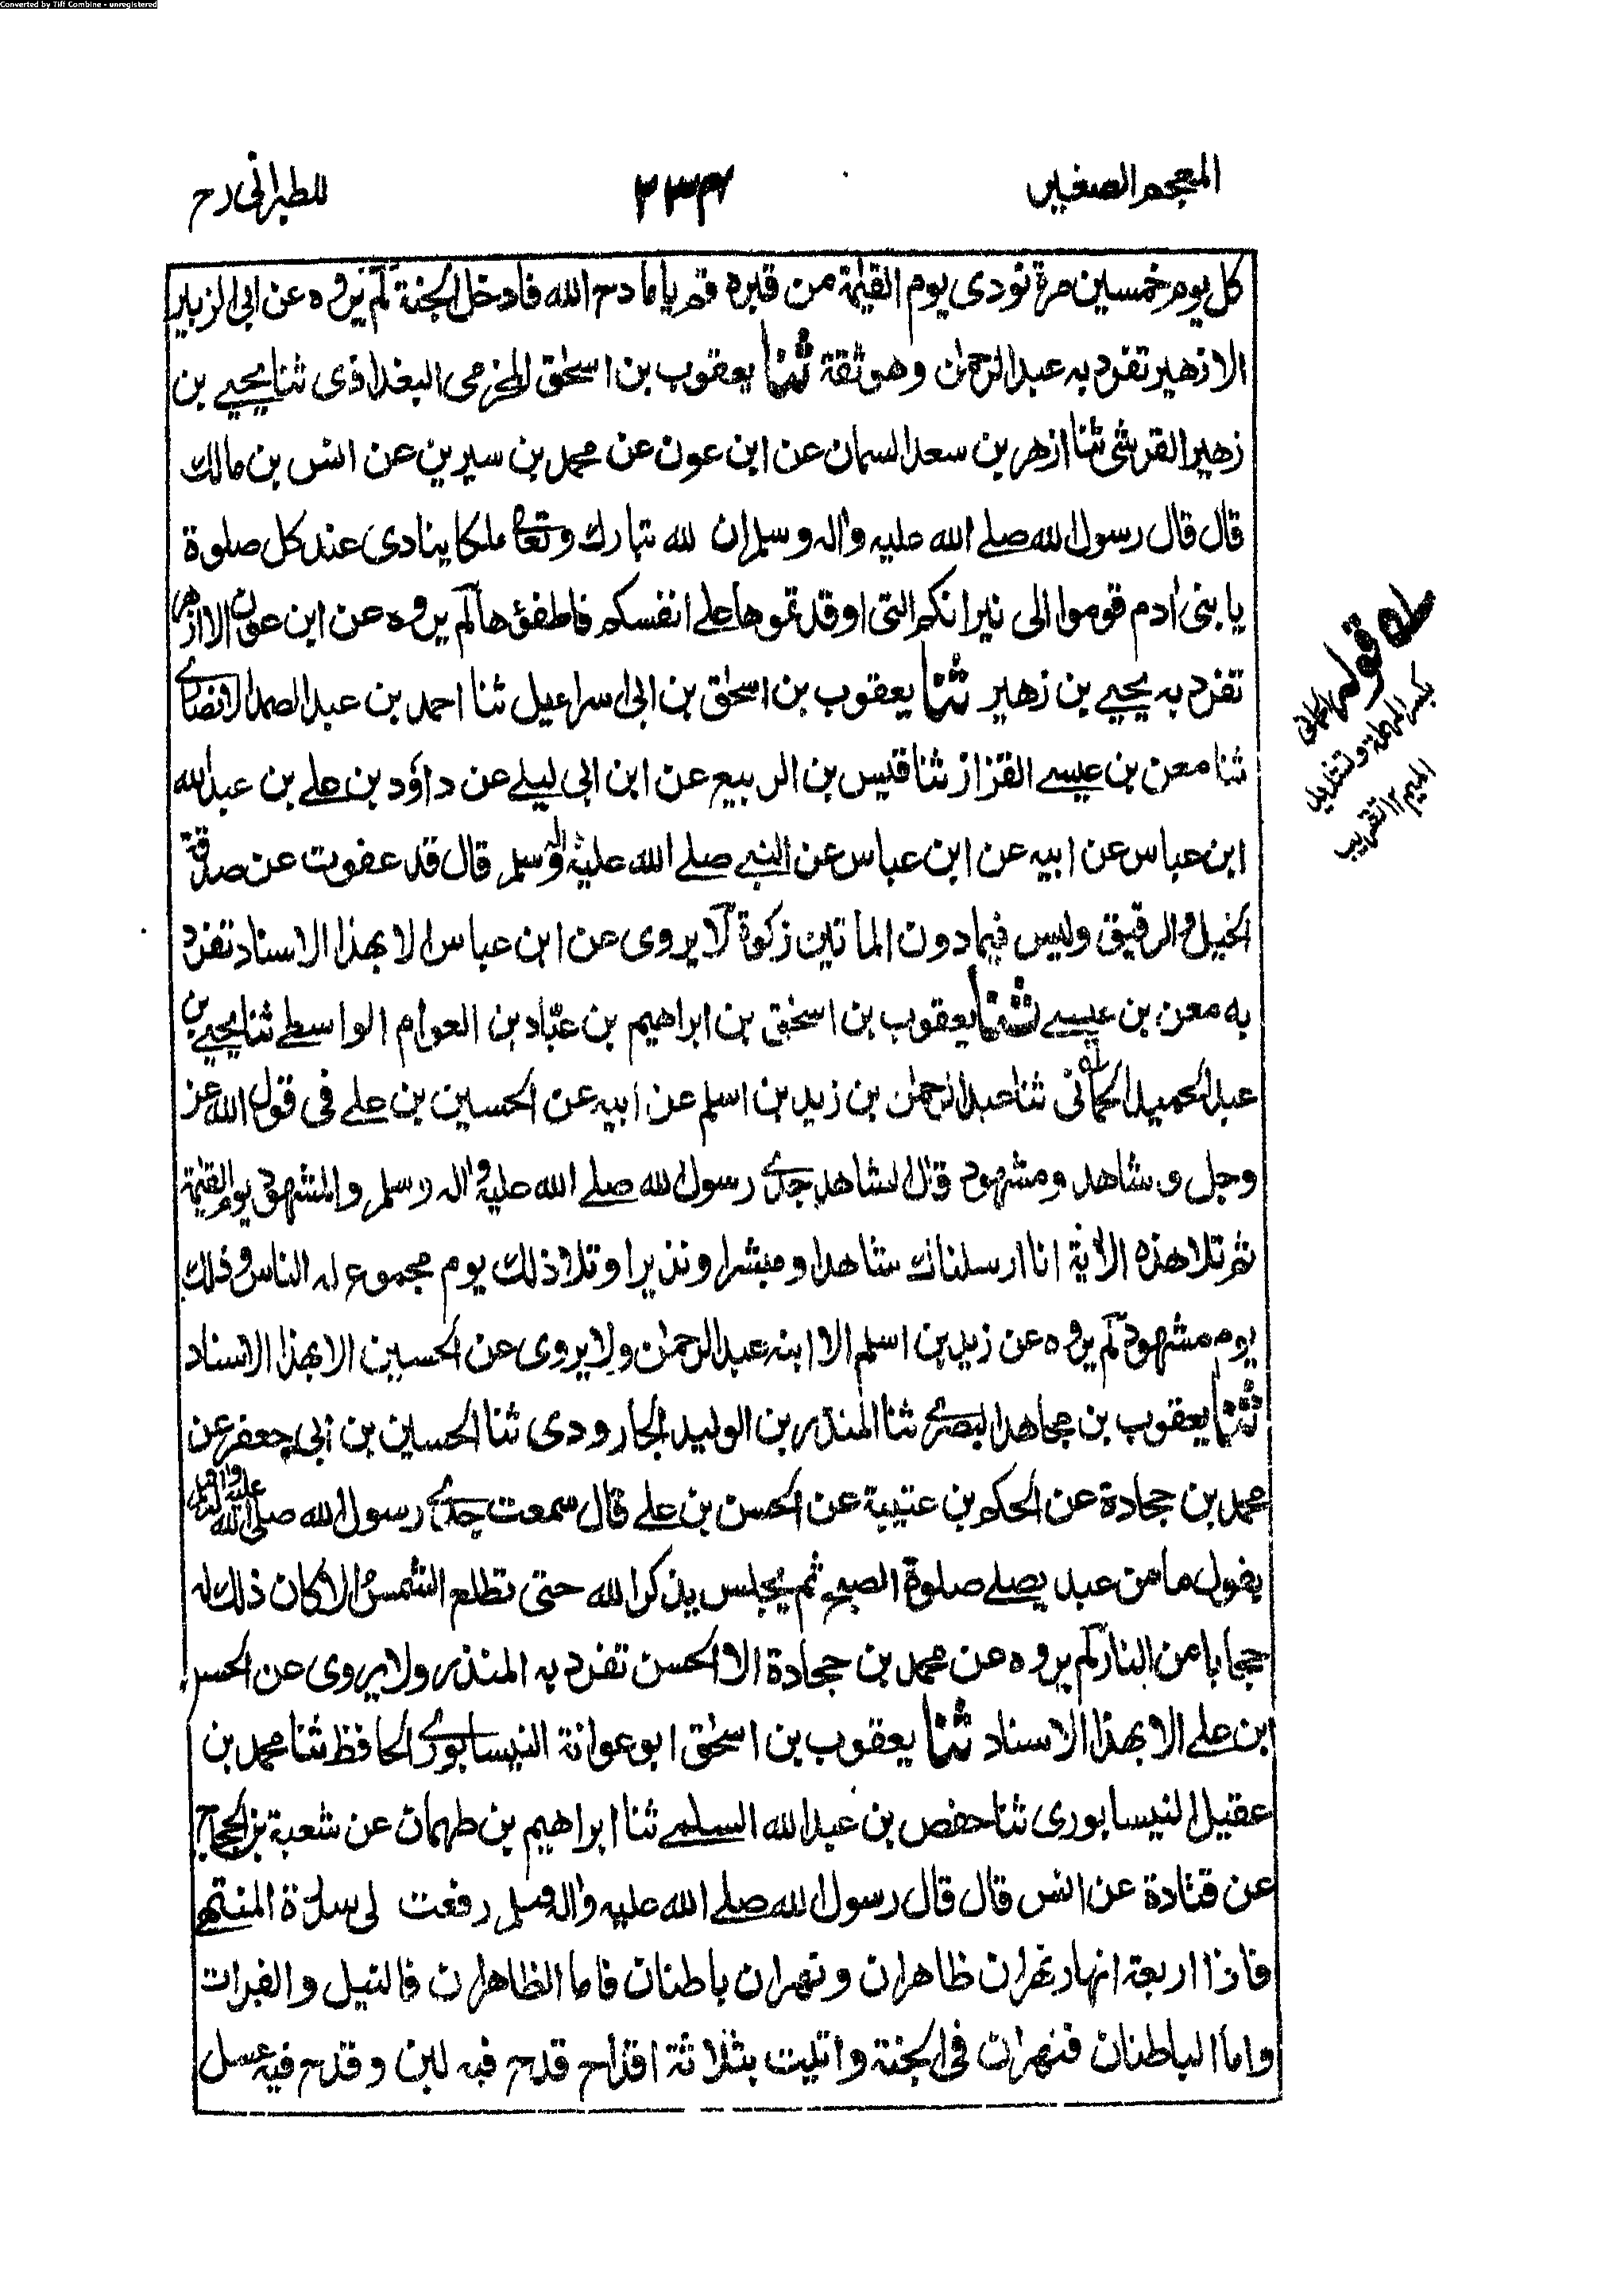 Converted by Tiff Combine - unregistered
المعجم الصغير
٢٣٤
للطبرانی رح
كل يوم خمسين مرة نودی يوم القيٰمة من قبره قم يا مادح الله فادخل الجنة لم يروه عن ابی الزبير
الا زهير تفرد به عبد الرحمٰن وهو ثقة ثنا يعقوب بن اسحٰق المخزمی البغدادی ثنا يحيے بن
زهير القرشی ثنا ازهر بن سعد السمان عن ابن عون عن محمد بن سيرين عن انس بن مالك
قال قال رسول الله صلے الله عليه واٰله وسلم ان لله تبارك وتعا ملكا ينادی عند كل صلوة
يا بنی اٰدم قوموا الی نيرانكم التی اوقدتموها علے انفسكم فاطفؤها لم يروه عن ابن عون الا ازهر
تفرد به يحيے بن زهير ثنا يعقوب بن اسحٰق بن ابی اسراعيل ثنا احمد بن عبد الصمد الانصاری
ثنا معن بن عيسے القزاز ثنا قيس بن الربيع عن ابن ابی ليلے عن داؤد بن علے بن عبد الله
ابن عباس عن ابيه عن ابن عباس عن النبے صلے الله عليه واٰله وسلم قال قد عفوت عن صدقة
الخيل والرقيق وليس فيما دون المأتين زكوة لا يروی عن ابن عباس الا بهذا الاسناد تفرد
به معن بن عيسے ثنا يعقوب بن اسحٰق بن ابراهيم بن عبّاد بن العوام الواسطے ثنا يحيے بن
عبد الحميد الحمانی ثنا عبد الرحمٰن بن زيد بن اسلم عن ابيه عن الحسين بن علے فی قول الله عز
وجل وشاهد ومشهود قال الشاهد جدی رسول الله صلے الله عليه واٰله وسلم والمشهود يوم القيٰمة
ثم تلا هذه الاٰية انا ارسلناك شاهدا ومبشرا ونذيرا وتلا ذلك يوم مجموع له الناس وذلك
يوم مشهود لم يروه عن زيد بن اسلم الا ابنه عبد الرحمٰن ولا يروی عن الحسين الا بهذا الاسناد
ثنا يعقوب بن مجاهد البصری ثنا المنذر بن الوليد الجارودی ثنا الحسين بن ابی جعفر عن
محمد بن جحادة عن الحكم بن عتيبة عن الحسن بن علے قال سمعت جدی رسول الله صلے الله عليه واٰله وسلم
يقول ما من عبد يصلے صلوة الصبح ثم يجلس يذكر الله حتی تطلع الشمس الا كان ذلك له
حجابا من النار لم يروه عن محمد بن جحادة الا الحسن تفرد به المنذر ولا يروی عن الحسن
ابن علے الا بهذا الاسناد ثنا يعقوب بن اسحٰق ابو عوانة النيسابوری الحافظ ثنا محمد بن
عقيل النيسابوری ثنا حفص بن عبد الله السلمے ثنا ابراهيم بن طهمان عن شعبة بن الحجاج
عن قتادة عن انس قال قال رسول الله صلے الله عليه واٰله وسلم رفعت لی سدرة المنتهے
فاذا اربعة انهار نهران ظاهران ونهران باطنان فاما الظاهران فالنيل والفرات
واما الباطنان فنهران فی الجنة واتيت بثلاثة اقداح قدح فيه لبن وقدح فيه عسل
له قوله الحمانی
بكسر المهملة وتشديد
الميم ١٢ تقريب